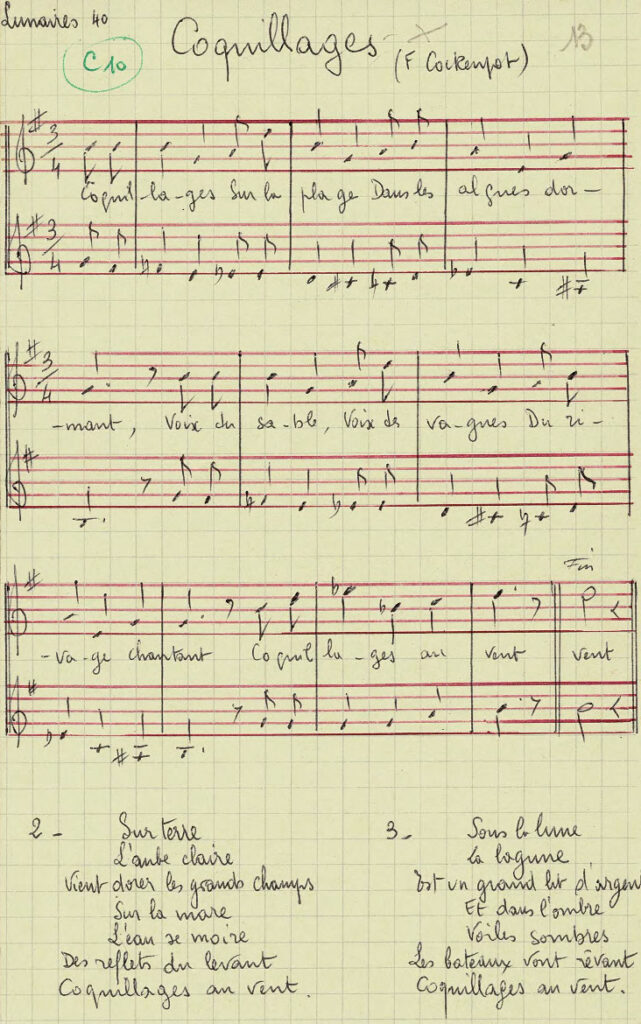 Lunaires 40
C10
Coquillages
(F Cockenpot)
13
3/4
Coquil-la-ges Sur la plage Dans les algues dor-
3/4
3/4
-mant, Voix du sa-ble, Voix des va-gues Du ri-
Fin
-va-ge chantant Coquil la-ges au vent vent
2- Sur terre
L'aube claire
Vient dorer les grands champs
Sur la mare
L'eau se moire
Des reflets du levant
Coquillages au vent.
3- Sous la lune
La lagune
Est un grand lit d'argent
Et dans l'ombre
Voiles sombres
Les bateaux vont rêvant
Coquillages au vent.